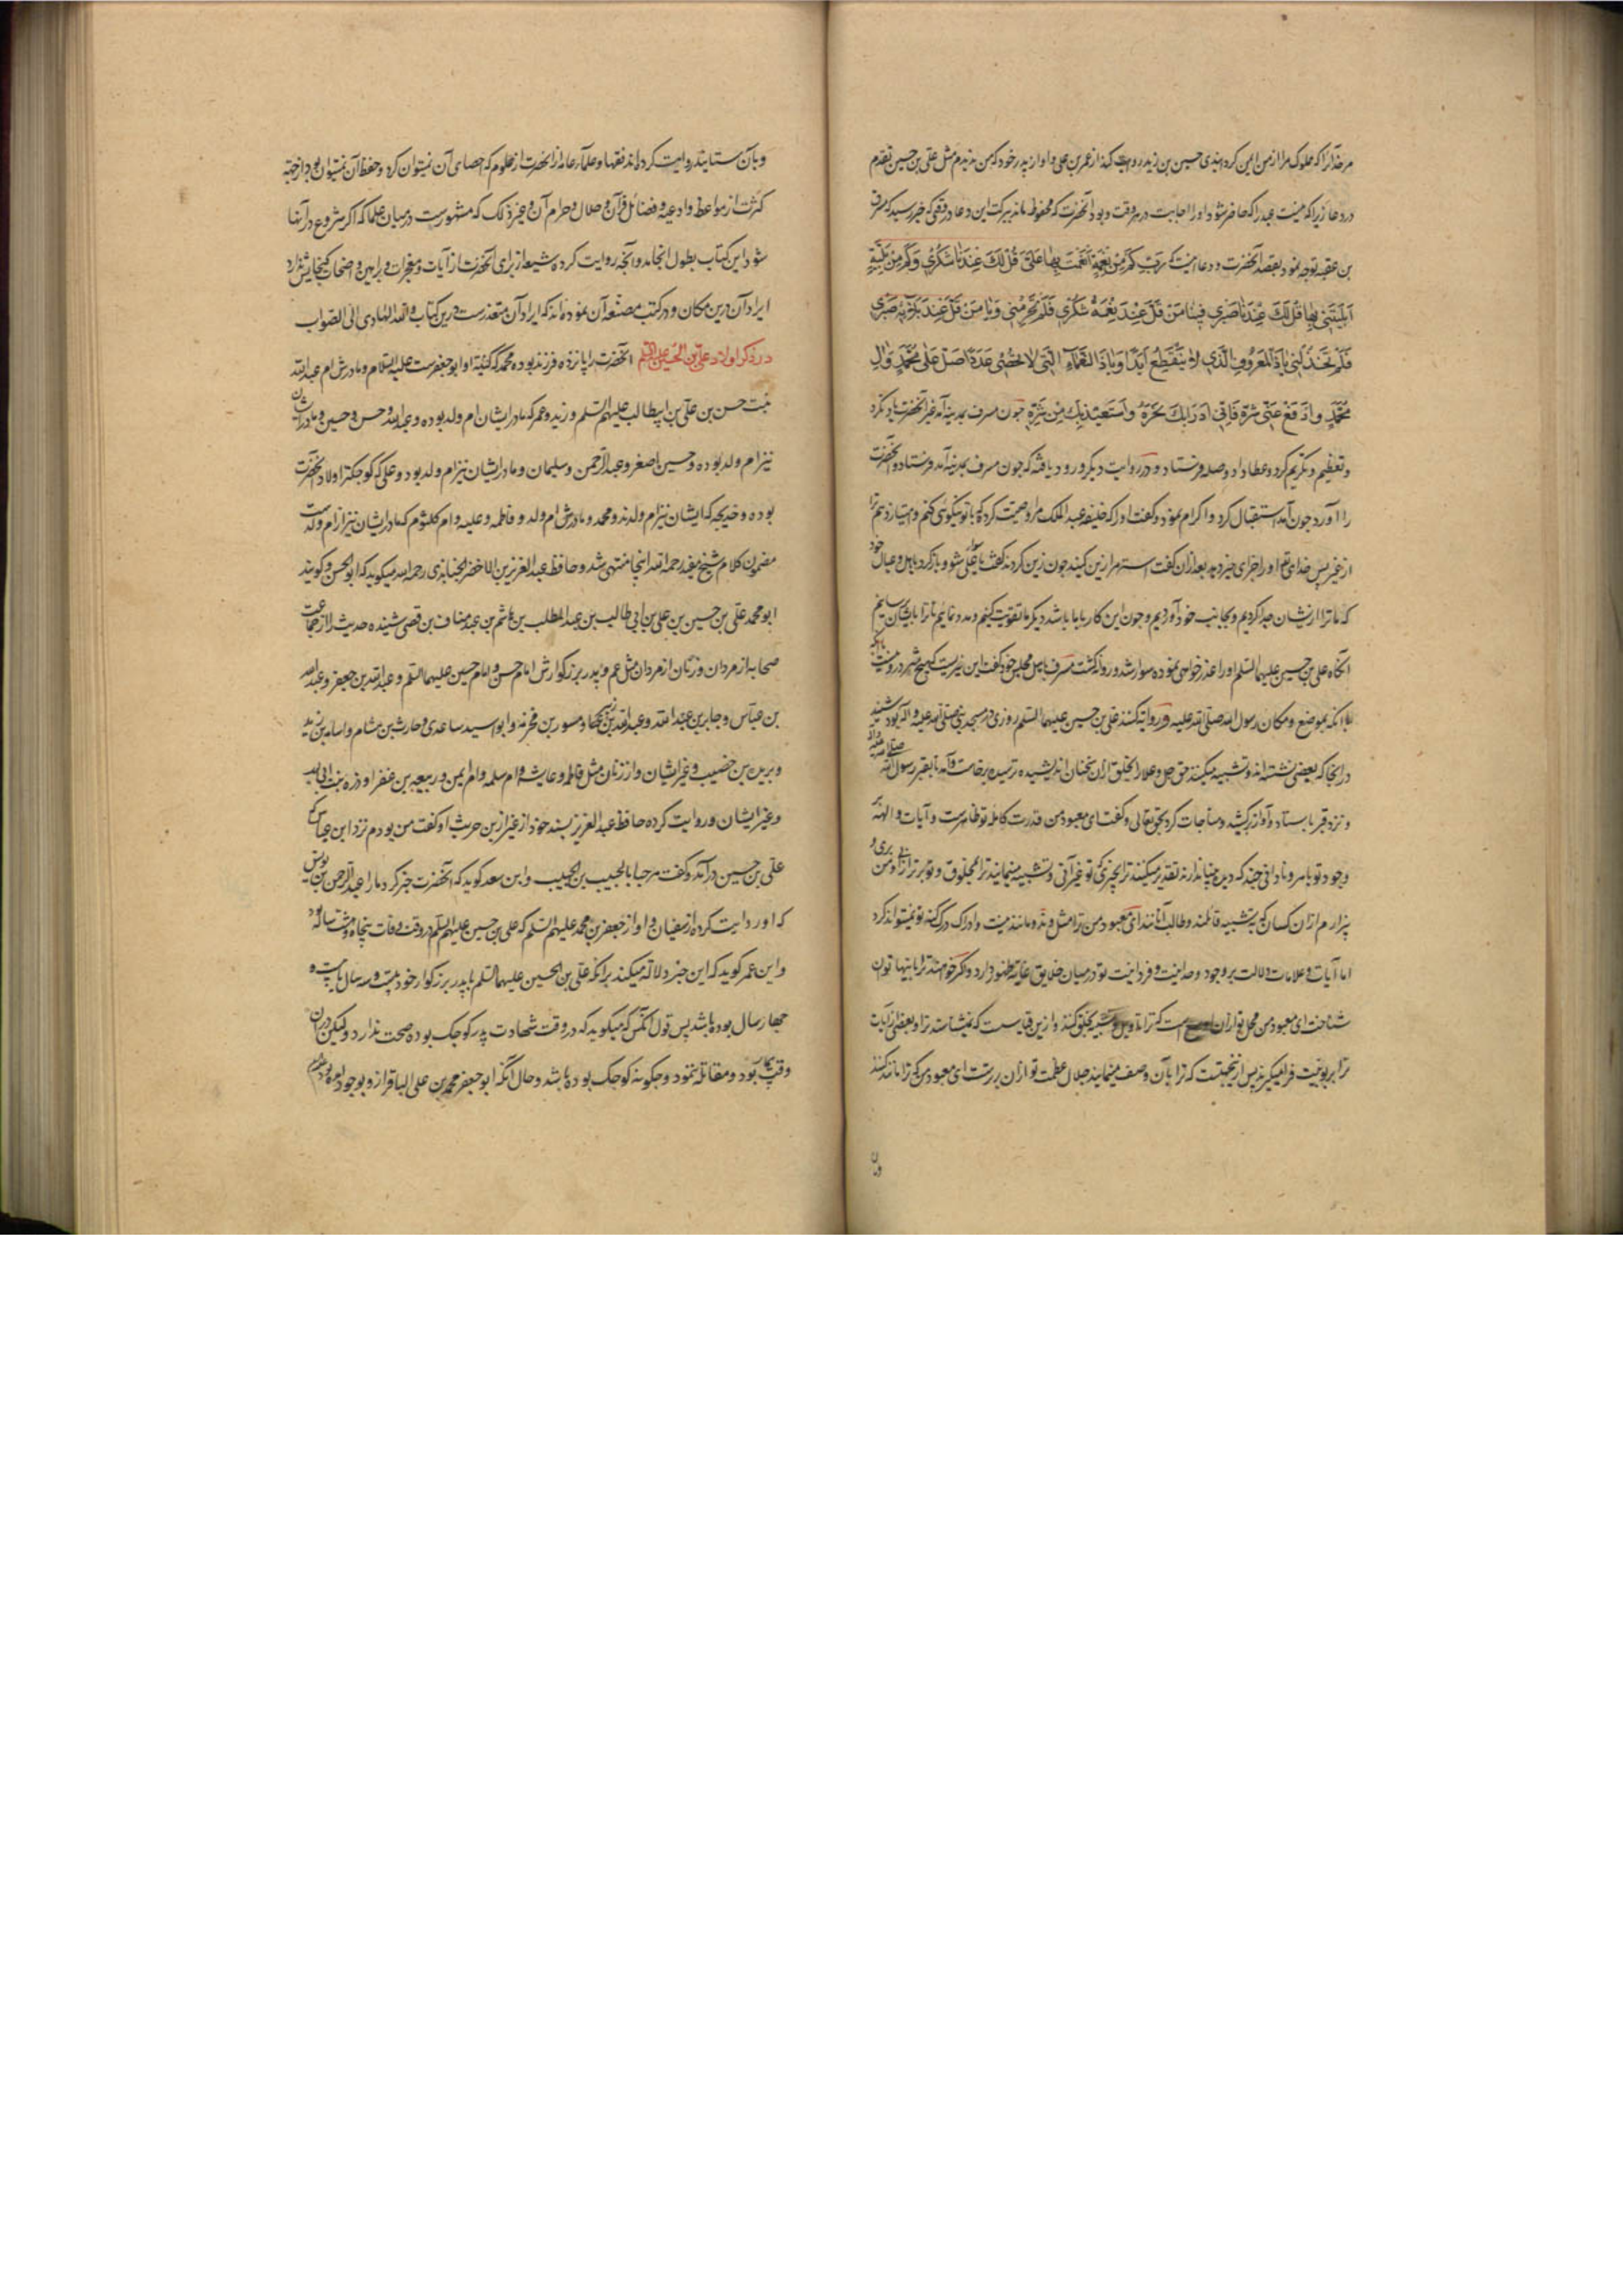 مر خدای را که مملوک مرا از من ایمن کردانیدی حسین بن زید روایت کند از عمر بن علی و او از پدر خود که من ندیدم مثل علی بن حسین تقدم
در دعا زیرا که نیست عبد را که حاضر شود او را اجابت در هر وقت و بود آنحضرت که محفوظ ماند ببرکت این دعا در وقتی که خبر رسید که مسرف
بن عقبه توجه نمود بقصد آنحضرت و دعا اینست که رَبِّ کَمْ مِنْ نِعْمَةٍ اَنْعَمْتَ بِهَا عَلَیَّ قَلَّ لَکَ عِنْدَهَا شُکْرِی وَکَمْ مِنْ بَلِیَّةٍ
اَبْلَیْتَنِی بِهَا قَلَّ لَکَ عِنْدَهَا صَبْرِی فَیَا مَنْ قَلَّ عِنْدَ نِعْمَهُ شُکْرِی فَلَمْ یَحْرِمْنِی وَیَا مَنْ قَلَّ عِنْدَ بَلَائِهِ صَبْرِی
فَلَمْ یَخْذُلْنِی یَا ذَا الْمَعْرُوفِ الَّذِی لَا یَنْقَطِعُ اَبَدًا وَیَا ذَا النَّعْمَاءِ الَّتِی لَا تُحْصٰی عَدَدًا صَلِّ عَلٰی مُحَمَّدٍ وَاٰلِ
مُحَمَّدٍ وَادْفَعْ عَنِّی شَرَّهُ فَاِنِّی اَدْرَأُ بِکَ نَحْرَهُ وَاَسْتَعِیذُ بِکَ مِنْ شَرِّهِ چون مسرف بمدینه آمد غیر آنحضرت یاد نکرد
و تعظیم و تکریم کرد و عطا داد و صله فرستاد و در روایت دیگر ورود یافته که چون مسرف بمدینه آمد فرستاد و آنحضرت
را آورد چون آمد استقبال کرد و اکرام نمود و گفت او را که خلیفه عبد الملک مرا وصیت کرده که با تو نیکوئی کنم و امتیاز دهم ترا
از غیر پس خدای تع او را جزای خیر دهد بعد ازان گفت استر مرا زین کنید چون زین کردند گفت یا علی شو و باز گرد باهل و عیال خود
که ما ترا ازیشان جدا کردیم و بجانب خود آوردیم و چون این کار با ما باشد دیگر ما تقویت کنیم و مدد نمائیم تا ترا بایشان رسانیم
آنگاه علی بن حسین علیهما السلم او را عذر خواهی نموده سوار شد و روانه گشت مسرف باهل مجلس خود گفت این خیریست که هیچ شر درو نیست
با آنکه بموضع و مکان رسول الله صلی الله علیه و روایه کنند علی بن حسین علیهما السلم روزی در مسجد نبی صلی الله علیه و آله بود شنید
در انجا که بعضی نشسته اند و تشبیه میکنند حق جل و علا را بخلق ازان سخنان اندیشیده ترسیده برخاست و آمد تا بقبر رسول الله
و نزد قبر بایستاد و آواز برکشید و مناجات کرد بحق تعالی و گفت ای معبود من قدرت کامله تو ظاهرست و آیات و الهیه
وجود تو باهر و نادانی چند که درین میان اندازه تقدیر میکنند ترا بچیزی که تو غیر آنی و تشبیه مینمایند ترا بمخلوق و تو برتر ازانی و من
بیزارم ازان کسان که بتشبیه قائلند و طالب آنانند ای معبود من ترا مثل و ند و مانند نیست و ادراک درک کنه تو نمیتواند کرد
اما آیات و علامات دلالت بر وجود وحدانیت و فردانیت تو در میان خلایق غایت ظهور دارد و اگر خواهند ترا باینها توان
شناخت ای معبود من محل تو ازان است که ترا تاویل و تشبیه بخلق کنند و ازین قیاسیست که نشناختند ترا و بعضی ازایات
ترا بربوبیت فرا میگیرند پس ازینجهتست که ترا بآن وصف مینمایند جلال عظمت تو ازان برترست ای معبود من که ترا مانند کنند
وبآن ستایند روایت کرده اند فقها و علماء عامه از آنحضرت از علوم که احصای آن نمیتوان کرد و حفظ آن نمیتوان بود از جهة
کثرت از مواعظ و ادعیه و فضائل قرآن و حلال و حرام آن و غیر ذلک که مشهورست در میان علما که اگر شروع در آنها
شود این کتاب بطول انجامد و آنچه روایت کرده شیعه از برای آنحضرت از آیات و معجزات و براهین واضحات گنجایش ندارد
ایراد آن درین مکان و در کتب مصنفه آن نموده اند که ایراد آن متعذرست درین کتاب والله الهادی الی الصواب
در ذکر اولاد علی بن الحسین علیهما السلم آنحضرت را پانزده فرزند بوده محمد که کنیة او ابو جعفرست علیه السلام و مادرش ام عبد الله
بنت حسن بن علی بن ابیطالب علیهم السلم و زید و عمر که مادر ایشان ام ولد بوده و عبد الله و حسن و حسین و مادرشان
نیز ام ولد بوده و حسین اصغر و عبد الرحمن و سلیمان و مادر ایشان نیز ام ولد بود و علی که کوچکتر اولاد آنحضرت
بوده و خدیجه که ایشان نیز ام ولدند و محمد و مادرش ام ولد و فاطمه و علیه و ام کلثوم که مادر ایشان نیز از ام ولدست
مضمون کلام شیخ مفید رحمه الله اینجا منتهی شد و حافظ عبد العزیز بن الاخضر الجنابذی رحمه الله میگوید که ابو الحسن و گویند
ابو محمد علی بن حسین بن علی بن ابی طالب بن عبد المطلب بن هاشم بن عبد مناف بن قصی شنیده حدیث را از جماعت
صحابه از مردان و زنان از مردان مثل عم و پدر بزرگوارش امام حسن و امام حسین علیهما السلم و عبد الله بن جعفر و عبد الله
بن عباس و جابر بن عبد الله و عبد الله بن و مسور بن مخرمه و ابو اسید ساعدی و حارث بن هشام و اسامه بن زید
و بریده بن خضیب و غیر ایشان و از زنان مثل فاطمه و عایشه و ام سلمه و ام ایمن و ربیعه بن عفرا و دره بنت ابی لهب
و غیر ایشان و روایت کرده حافظ عبد العزیز بسند خود از عیزار بن حریث او گفت من بودم نزد ابن عباس که
علی بن حسین درآمد و گفت مرحبا بالحبیب بن الحبیب و ابن سعد گوید که آنحضرت خبر کرد ما را عبد الرحمن بن یونس
که او روایت کرده از سفیان و او از جعفر بن محمد علیهم السلم که علی بن حسین علیهم السلم در وقت وفات پنجاه و هشت ساله بود
و ابن عمر گوید که این خبر دلالة میکند برآنکه علی بن الحسین علیهما السلم با پدر بزرگوار خود بیست و سه سال یا بیست و
چهار سال بوده باشد پس قول آنکس که میگوید که در وقت شهادت پدر کوچک بوده صحت ندارد ولیکن دران
وقت بیمار بود و مقاتله ننمود و چگونه کوچک بوده باشد و حال آنکه ابو جعفر محمد بن علی الباقر ازو بوجود آمده بود